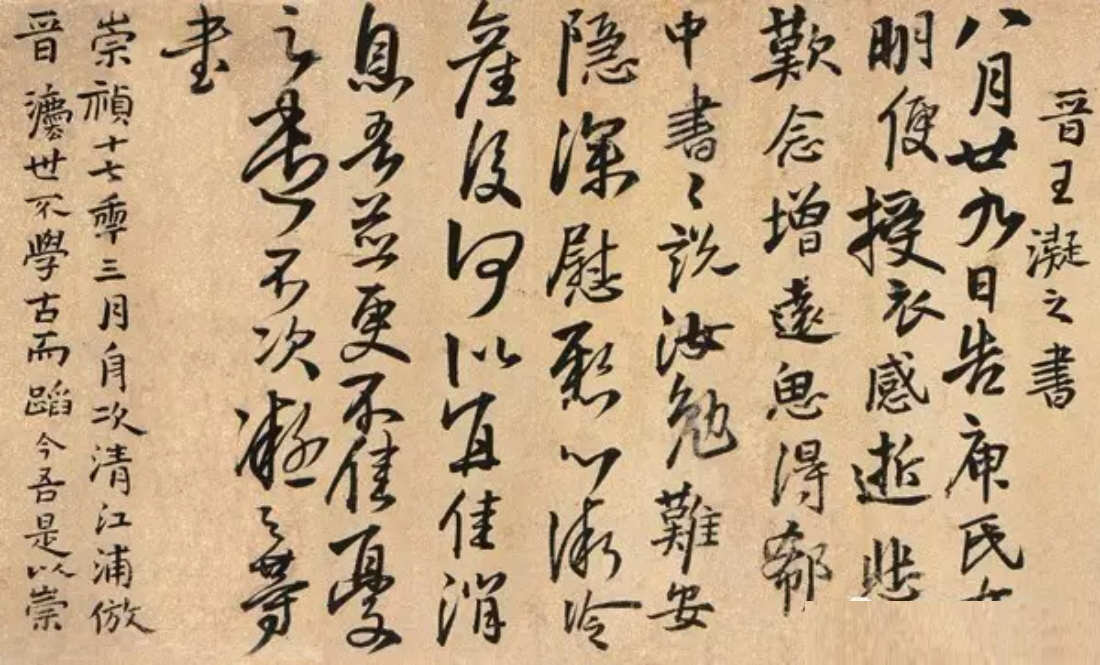 晉王凝之書
八月廿九日告庾氏女
明便授衣感逝悲
歎念增遠思得郗
中書〻說汝勉難安
隱深慰懸心漸冷
產後何似宜佳消
息吾並更不佳憂
之遣不次凝之等
書
崇禎十七秊三月舟次清江浦倣
晉灋世不學古而蹈今吾是以崇